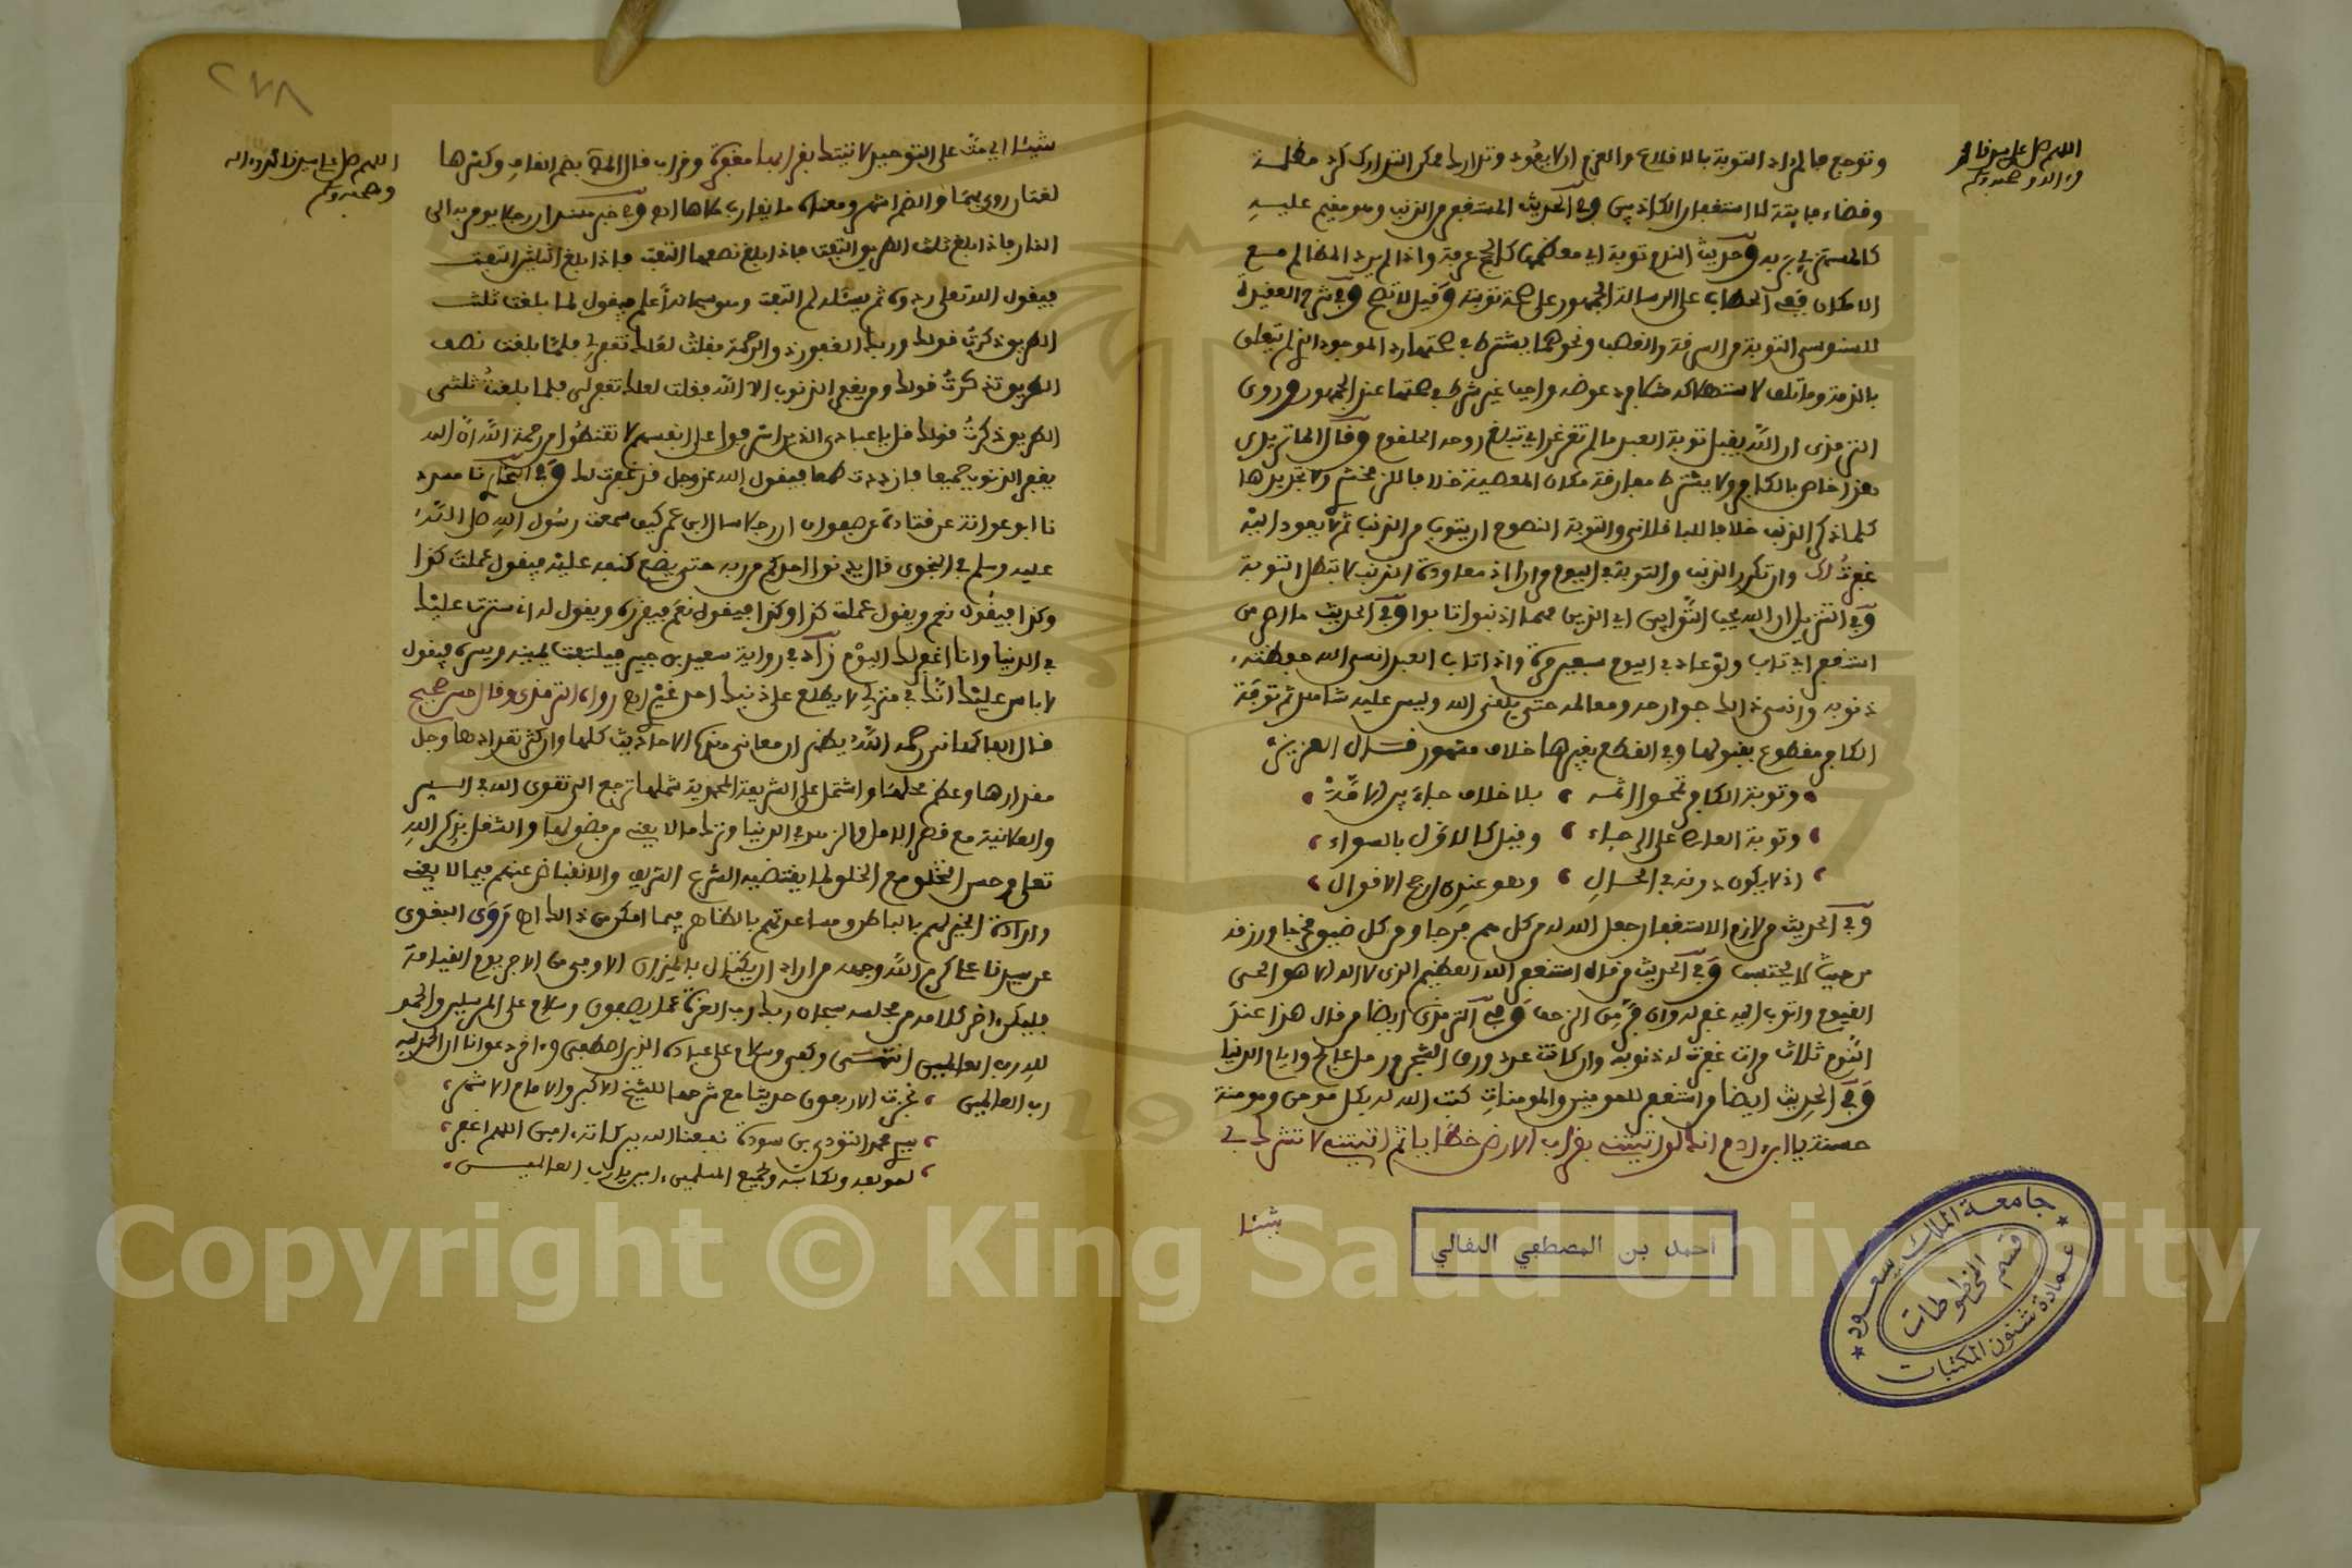 اللهم صل على سيدنا محمد
وءاله وصحبه وسلم
وتوجع فالمراد التوبة بالاقلاع والعزم ان لا يعود وتدارك ممكن التدارك كرد مظلمة
وقضاء فايتة اما استغفار الكاذبين وفي الحديث المستغفر من الذنب وهو مقيم عليه
كالمستهزئ بربه وحديث الندم توبة اي معظمها كالحج عرفة واذا لم يرد المظالم مع
الامكان ففي الحطاب على الرسالة الجمهور على صحة توبته وقيل لا تصح وفي شرح العقيدة
للسنوسي التوبة من السرقة والغصب ونحوهما يشترط في صحتها رد الموجود الذي لم تتعلق
بالذمة وما تلف لاستهلاكه مثلا فرد عوضه واجب غير شرط في صحتها عند الجمهور وروى
الترمذي ان الله يقبل توبة العبد ما لم تغرغر اي تبلغ روحه الحلقوم وقال الماتريدي
هذا خاص بالكافر ولا يشترط مفارقة مكان المعصية خلافا للزمخشري ولا تجديدها
كلما ذكر الذنب خلافا للباقلاني والتوبة النصوح ان يتوب من الذنب ثم لا يعود اليه
غفرت لك وان تكرر الذنب والتوبة في اليوم مرارا اذ معاودة الذنب لا تبطل التوبة
وفي التنزيل ان الله يحب التوابين اي الذين مهما اذنبوا تابوا وفي الحديث ما اصر من
استغفر اي تاب ولو عاد في اليوم سبعين مرة واذا تاب العبد انسى الله حفظته
ذنوبه وانسى ذالك جوارحه ومعالمه حتى يلقى الله وليس عليه شاهد ثم توبة
الكافر مقطوع بقبولها وفي القطع بغيرها خلاف مشهور
وتوبة الكافر تمحوا اثمه ، بلا خلاف جاء بين الامة
وتوبة العاصي على الرجاء ، وقيل كالاول بالسواء
اذ لا يكون دونه في الحال ، وهو عندي ارجح الاقوال
وفي الحديث من لازم الاستغفار جعل الله له من كل هم فرجا ومن كل ضيق مخرجا ورزقه
من حيث لا يحتسب وفي الحديث من قال استغفر الله العظيم الذي لا اله الا هو الحي
القيوم واتوب اليه غفر له وان فر من الزحف وفي الترمذي ايضا من قال هذا عند
النوم ثلاث مرات غفرت له ذنوبه وان كانت عدد ورق الشجر ورمل عالج وايام الدنيا
وفي الحديث ايضا من استغفر للمومنين والمومنات كتب الله له بكل مومن ومومنة
حسنة يا ابن ءادم انك لو اتيتني بقراب الارض خطايا ثم اتيتني لا تشرك بي
شيئا
احمد بن المصطفى
جامعة الملك سعود
قسم المخطوطات
عمادة شئون المكتبات
٢٧٨
اللهم صل على سيدنا محمد وءاله
وصحبه وسلم
شيئا اي مت على التوحيد لاتيتك بقرابها مغفرة وقراب قال بضم القاف وكسرها
لغتان روي بهما والضم اشهر ومعناه ما يقارب ملأها اه وفي خبر مسند ان رجلا يومر به الى
النار فاذا بلغ ثلث الطريق التفت فاذا بلغ نصفها التفت فاذا بلغ الثلثين التفت
فيقول الله تعلى ردوه ثم يسئله لم التفت وهو سبحانه اعلم فيقول لما بلغت ثلث
الطريق ذكرت قولك وربك الغفور ذو الرحمة فقلت لعلك تغفر لي فلما بلغت نصف
الطريق تذكرت قولك ومن يغفر الذنوب الا الله فقلت لعلك تغفر لي فلما بلغت ثلثي
الطريق ذكرت قولك قل ياعبادي الذين اسرفوا على انفسهم لا تقنطوا من رحمة الله ان الله
يغفر الذنوب جميعا فازددت طمعا فيقول الله عز وجل قد غفرت لك وفي البخاري نا مسدد
نا ابو عوانة عن قتادة عن صفوان ان رجلا سال ابن عمر كيف سمعت رسول الله صلى الله
عليه وسلم في النجوى قال يدنوا احدكم من ربه حتى يضع كنفه عليه فيقول عملت كذا
وكذا فيقول نعم ويقول عملت كذا وكذا فيقول نعم فيقرره ويقول له اني سترت عليك
في الدنيا وانا اغفر لك اليوم زاد في رواية سعيد بن جبير فيلتفت يمينه ويسره فيقول
لا باس عليك انك في لا يطلع على ذنبك احد غيري اه رواه الترمذي وقال حسن صحيح
قال الفاكهاني رحمه الله يظهر ان معاني هذه الاحاديث كلها وان كثر تعدادها وجل
مقدارها وعظم محلها واشتمل على الشريعة المحمدية شملها ترجع الى تقوى الله في السر
والعلانية مع قصر الامل والزهد في الدنيا وترك ما لا يعنى من فضولها والشغل بذكر الله
تعلى وحسن التخلق مع الخلق لما يقتضيه الشرع الشريف والانقباض عنهم فيما لا يعنى
وارادة الخير لهم بالباطن ومساعدتهم بالظاهر فيما امكن من ذالك اه روى البغوي
عن سيدنا علي كرم الله وجهه من اراد ان يكتال بالميزان الاوفى من الاجر يوم القيامة
فليكن ءاخر كلامه من مجلسه سبحان ربك رب العزة عما يصفون وسلام على المرسلين والحمد
لله رب العالمين انتهى وكفى وسلام على عباده الذين اصطفى وءاخر دعوانا ان الحمد لله
رب العالمين ، نجزت الاربعون حديثا مع شرحها للشيخ الاكبر والامام الاشهر ،
سيدي محمد التودي بن سودة نفعنا الله ببركاته ءامين اللهم اغفر ،
لمولفه ولكاتبه ولجميع المسلمين ءامين يا رب العالمين
Copyright © King Saud University